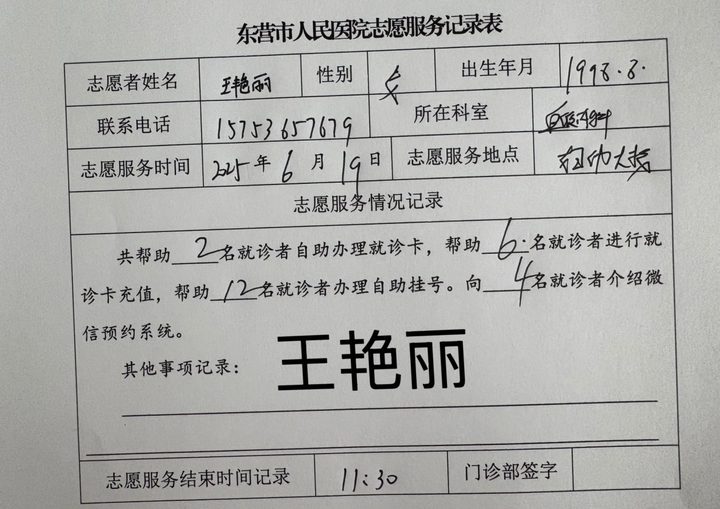 东营市人民医院志愿服务记录表
志愿者姓名 王艳丽 性别 女 出生年月 1998.8.
联系电话 15753657679 所在科室
志愿服务时间 2025年6月19日 志愿服务地点
志愿服务情况记录
共帮助2名就诊者自助办理就诊卡，帮助6.名就诊者进行就
诊卡充值，帮助12名就诊者办理自助挂号。向4名就诊者介绍微
信预约系统。
其他事项记录：
王艳丽
志愿服务结束时间记录 11:30 门诊部签字